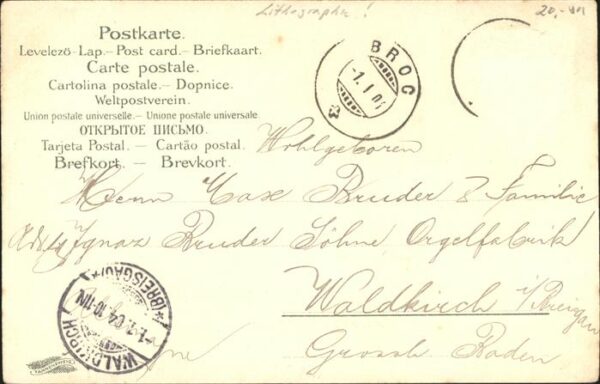 Lithographie!
20,-
Postkarte.
Levelező-Lap.-Post card.-Briefkaart.
Carte postale.
Cartolina postale.- Dopnice.
Weltpostverein.
Union postale universelle.- Unione postale universale
ОТКРЫТОЕ ПИСЬМО.
Tarjeta Postal.- Cartão postal.
Brefkort.- Brevkort.
BROC
Wohlgeboren
Herrn Max Bruder & Familie
Ignaz Bruder Söhne Orgelfabrik
Waldkirch i/Breisgau
Grossh Baden
WALDKIRCH
(BREISGAU)